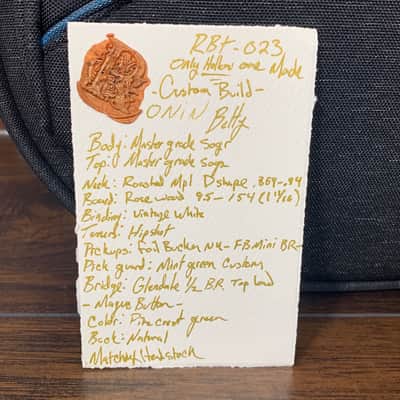 RBt-023
only Hollow one Made
-Custom Build-
ONIN Betty
Body: Master grade Sogr
Top: Master grade sogr
Neck: Roasted Mpl D shape .859-.94
Board: Rosewood 9.5-
Binding: Vintage White
Tuners: Hipshot
Pickups: Foil Bucker NK- FB Mini BR-
Pick guard: Mint green Custom
Bridge: Glendale 1/2 BR Top Load
- Button-
Color: green
Back: Natural
Matching Headstock